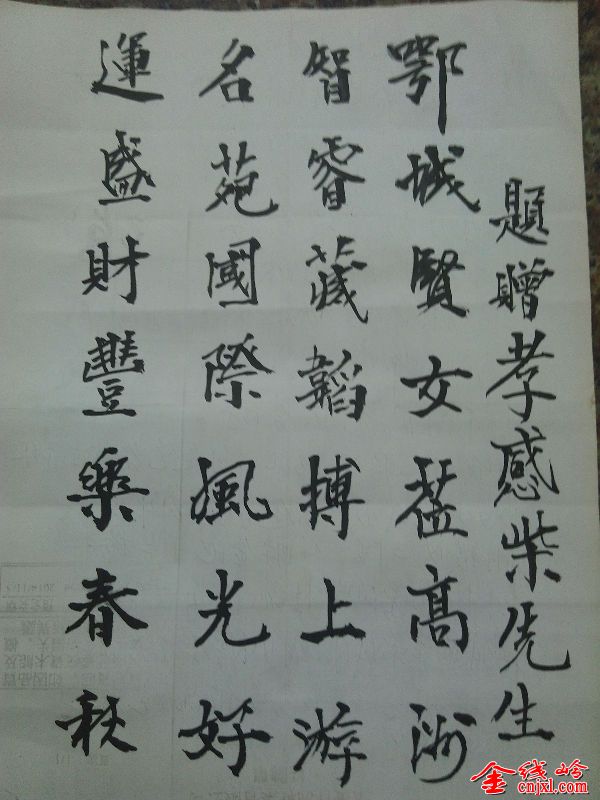 題贈孝感柴先生
鄂城賢女高洲
智睿藏韜搏上游
名苑國際風光好
運盛財豐樂春秋
金线岭
cnjxl.com